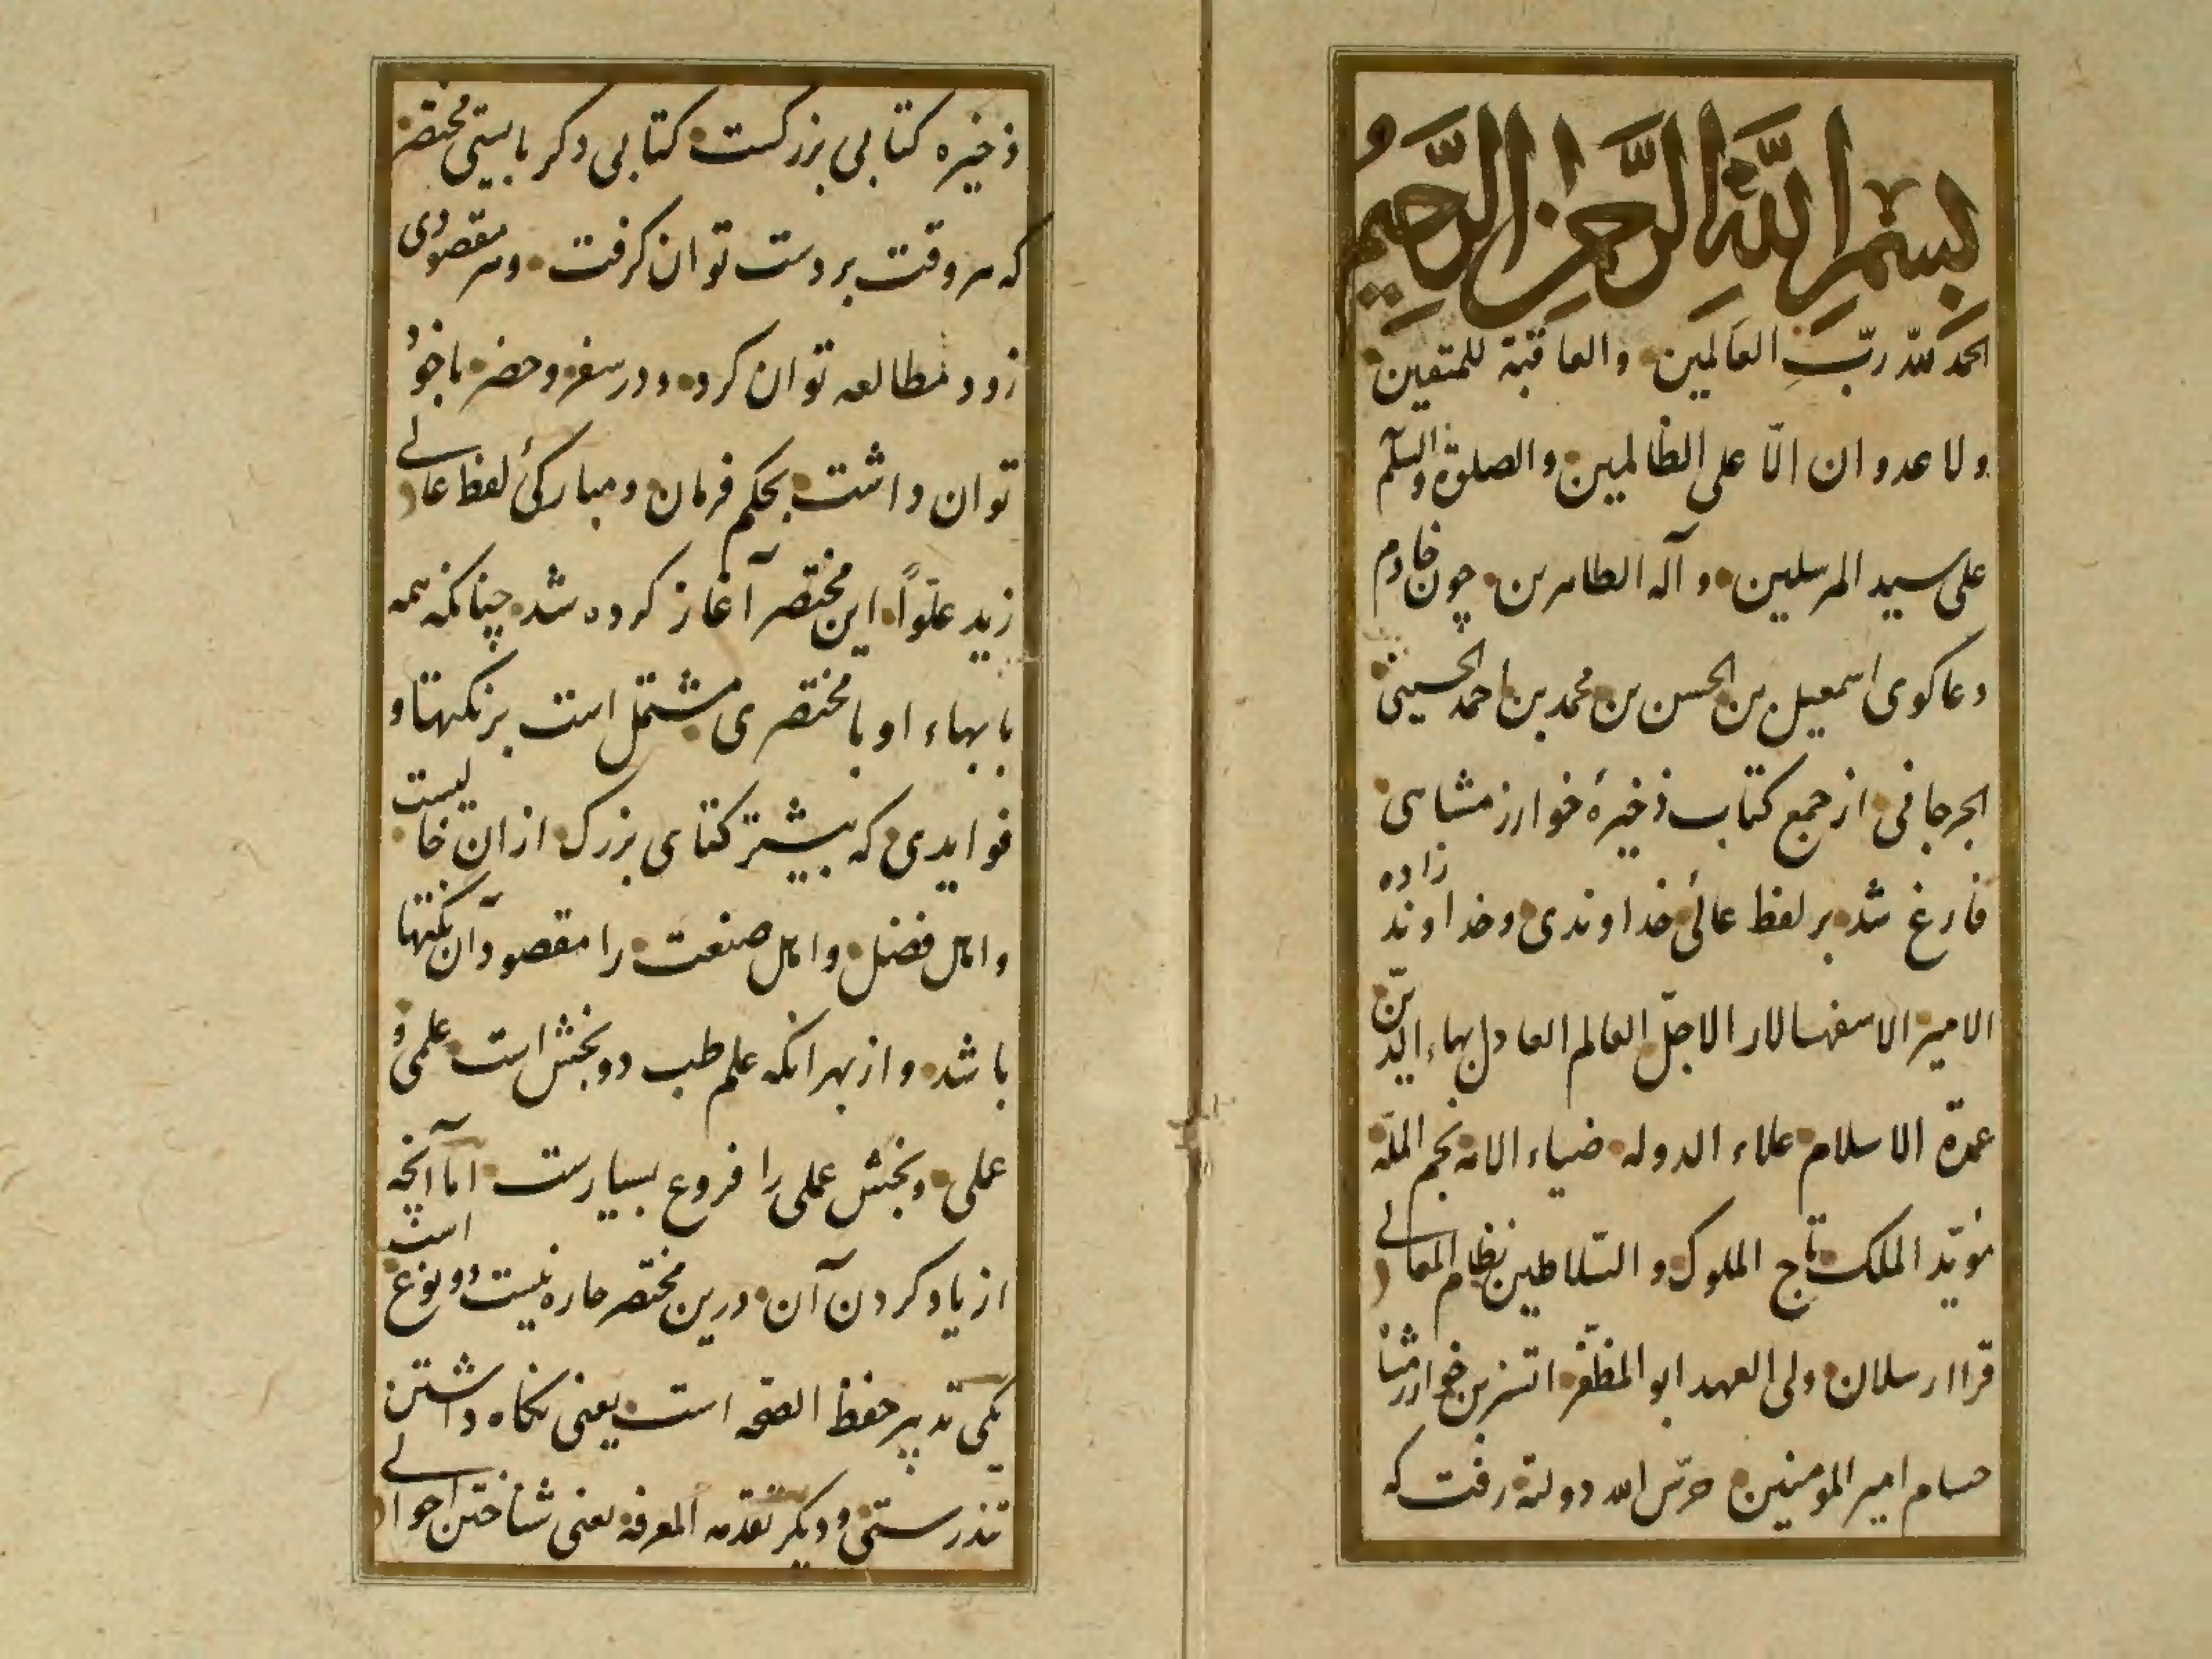 بِسْمِ اللَّهِ الرَّحْمٰنِ الرَّحِيمِ
الحمد لله ربّ العالمین والعاقبة للمتقین
ولا عدوان الّا علی الظالمین والصلوة والسلّم
علی سید المرسلین و آله الطاهرین چون خادم
دعاکوی اسمعیل بن الحسن بن محمد بن احمد الحسینی
الجرجانی از جمع کتاب ذخیرهٔ خوارزمشاهی
فارغ شد بر لفظ عالیٔ خداوندی و خداوند زاده
الامیر الاسفهسالار الاجلّ العالم العادل بهاء الدین
عمدة الاسلام علاء الدوله ضیاء الامة نجم الملّة
مؤیّد الملک تاج الملوک و السّلاطین نظام المعالی
قرا ارسلان ولی العهد ابوالمظفّر اتسز بن خوارزمشاه
حسام امیر المومنین حرّس الله دولته رفت که
ذخیره کتابی بزرکست کتابی دکر بایستی مختصر
که هر وقت بر دست توان کرفت و هر مقصودی
زود مطالعه توان کرد و در سفر و حضر با خود
توان داشت بحکم فرمان و مبارکیٔ لفظ عالی
زید علوّاً این مختصر آغاز کرده شد چنانکه همه
بابهاء او با مختصری مشتمل است بر نکتها و
فوایدی که بیشتر کتابهای بزرک از ان خالیست
و اهل فضل و اهل صنعت را مقصود آن نکتها
باشد و از بهر انکه علم طب دو بخش است علمی و
عملی و بخش عملی را فروع بسیارست اما آنچه
از یاد کردن آن درین مختصر چاره نیست دو نوع است
یکی تدبیر حفظ الصحّه است یعنی نکاه داشتن
تندرستی و دیکر تقدمه المعرفه یعنی شناختن احوالی